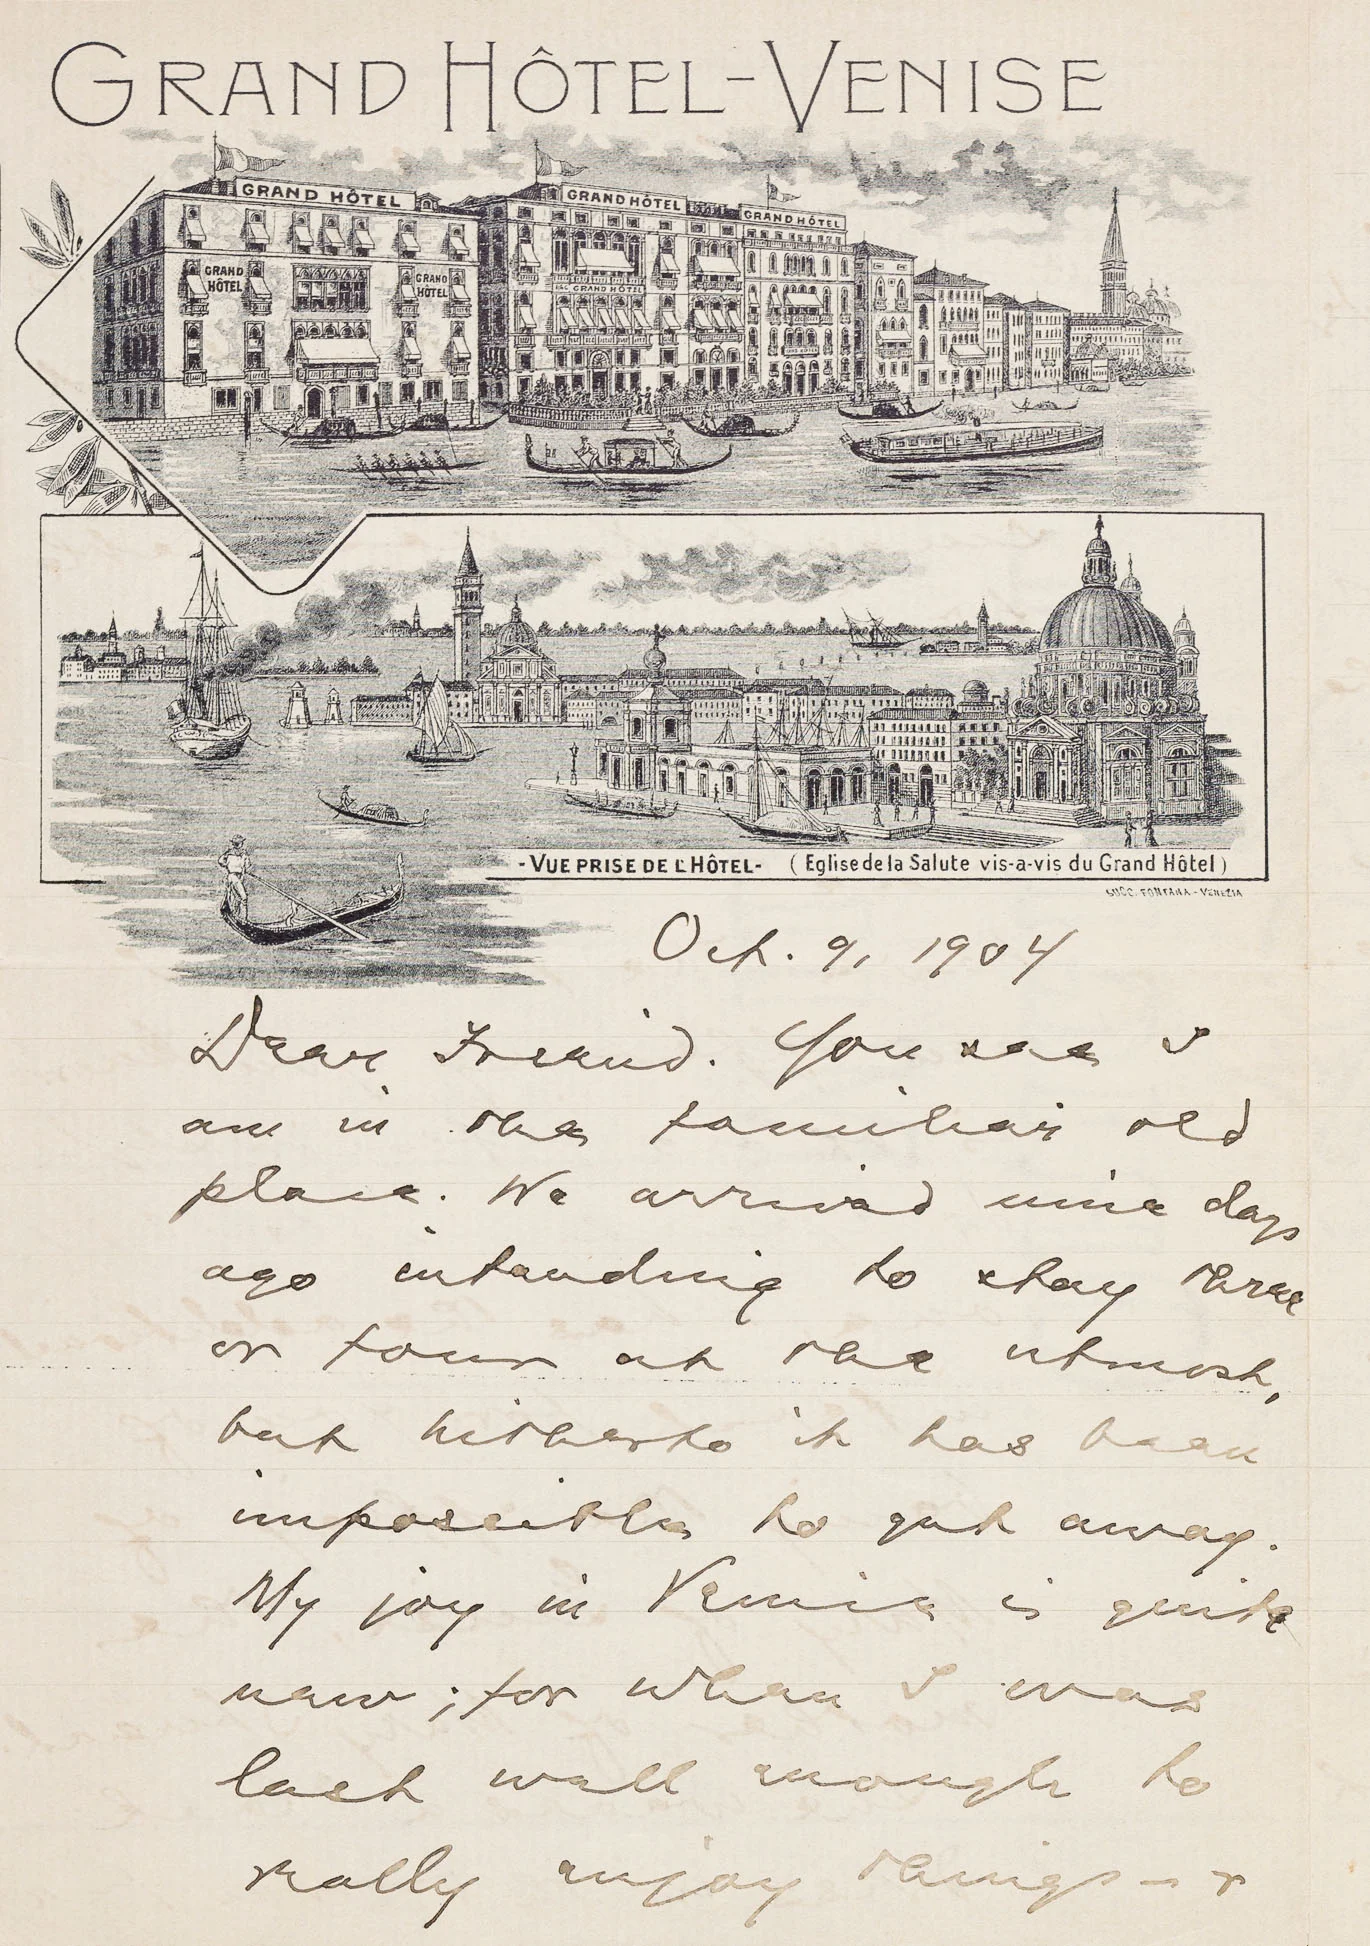 GRAND HÔTEL-VENISE
GRAND HÔTEL
GRAND HÔTEL
GRAND HÔTEL
GRAND
HÔTEL
GRAND
HÔTEL
GRAND HÔTEL
-VUE PRISE DE L'HÔTEL- (Eglise de la Salute vis-a-vis du Grand Hôtel)
SUCC. FONTANA - VENEZIA
Oct. 9, 1904
Dear Friend. You see I
am in the familiar old
place. We arrived nine days
ago intending to stay three
or four at the utmost,
but hitherto it has been
impossible to get away.
My joy in Venice is quite
new; for when I was
last well enough to
really enjoy things — &